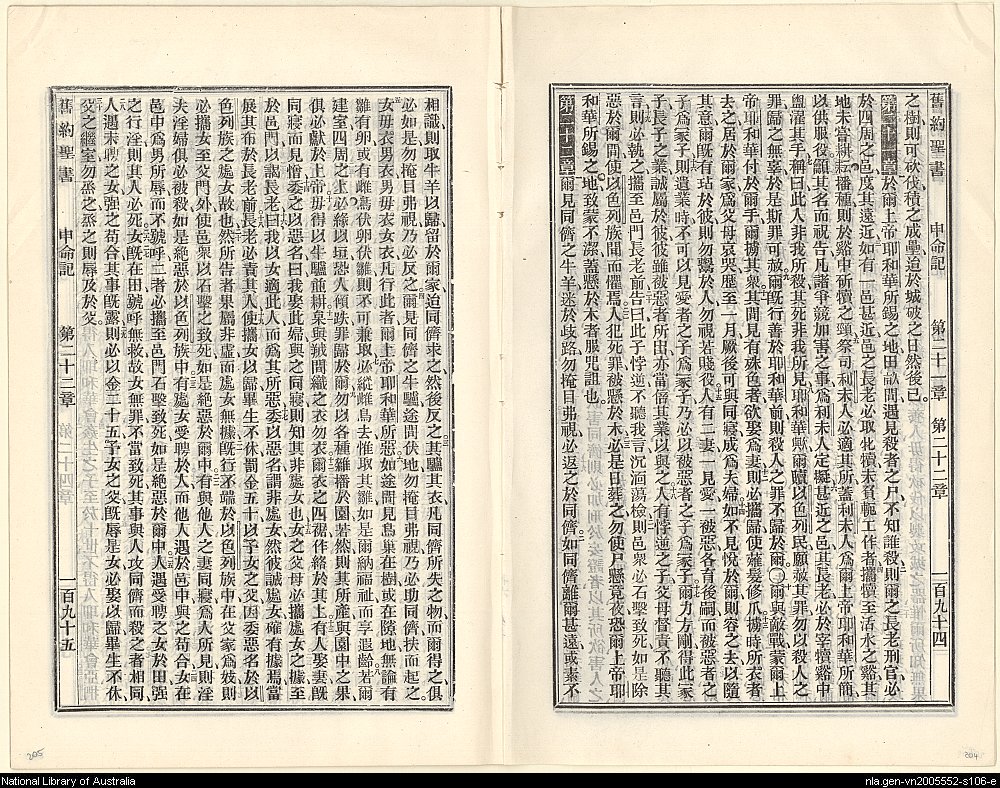 舊約聖書 申命記 第二十一章 第二十二章 一百九十四
之樹則可砍伐積之成壘迫於城破之日然後已
第二十一章於爾上帝耶和華所錫之地田畝間遇見殺者之尸不知誰殺則爾之長老刑官必
於四周之邑度其遠近如有一邑甚近邑之長老必取牝犢未負軛工作者攜犢至活水之谿其
地未嘗耕耘播種則於谿中斫犢之頸祭司利未人必適其所蓋利未人爲爾上帝耶和華所簡
以供役役籲其名而祝告凡諸爭競加害之事爲利未人定擬甚近之邑其長老必於宰犢谿中
盥濯其手稱曰此人非我所殺其死非我所見耶和華歟爾贖以色列民願赦其罪勿以殺人之
罪歸爾之無辜於是斯罪可赦爾既行善於耶和華前則殺人之罪不歸於爾〇爾與敵戰蒙爾上
帝耶和華付於爾手爾擄其衆其間見有殊色者欲娶爲妻則必攜歸使薙髮修爪擄時所衣者
去之居於爾家爲父母哀哭歷至一月厥後可與同寢成爲夫婦如不見悅於爾則容之去以隨
其意爾既有玷於彼則勿鬻於人勿視若賤役人有二妻一見愛一被惡各育後嗣而被惡者之
子爲冢子則遺業時不可以見愛者之子爲冢子乃必以被惡者之子爲冢子爾力方剛得此冢
子長子之業誠屬於彼彼雖被惡者所出亦當倍其業以與之人有悖逆之子父母督責不聽其
言則必執之攜至邑門長老前告曰此子悖逆不聽我言沉湎蕩檢則邑衆必石擊致死如是除
惡於爾間使以色列族聞而懼焉人犯死罪被懸於木必是日葬之勿使尸懸竟夜恐爾上帝耶
和華所錫之地致蒙不潔蓋懸於木者服咒詛也
第二十二章爾見同儕之牛羊迷於歧路勿掩目弗視必返之於同儕如同儕離爾甚遠或素不
舊約聖書 申命記 第二十三章 一百九十五
相識則取牛羊以歸留於爾家迨同儕求之然後反之其驢其衣凡同儕所失之物而爾得之俱
必如是勿掩目弗視乃必反之爾見同儕之牛驢途間伏地勿掩目弗視乃必助同儕扶而起之
女毋衣男衣男毋衣女衣凡行此者爾上帝耶和華所惡如途間見鳥巢在樹或在隙地無論有
雛有卵或有雌爲伏卵伏雛則不可兼取必縱雌鳥去惟取其雛如是爾納福祉而享遐齡若爾
建室四周之上必緣以垣恐人傾跌罪歸於爾勿以各種雜播於園若然則其所產與園中之果
俱必獻於上帝毋得以牛驢並耕枲與羢間織之衣勿衣爾衣之四裾作綌於其上有人娶妻既
同寢而見憎委之以惡名曰我娶此婦與之同寢則知其非處女也女之父母必攜處女之據至
於邑門以謁長老曰我以女適此人而爲其所惡委以惡名謂非處女然彼誠處女確有據焉當
展其布於長老前長老必責其人使攜女以歸畢生不休罰金五十以予女之父因委惡名於以
色列族之處女故也然所告者果屬非虛而處女無據既行不端於以色列族中在父家爲妓則
必攜女至父門外使邑衆以石擊之致死如是絕惡於爾中有與他人之妻同寢爲人所見則淫
夫淫婦俱必被殺如是絕惡於以色列族中有處女受聘於人而他人遇於邑中與之苟合女在
邑中爲男所辱而不號呼二者必攜至邑門石擊致死如是絕惡於爾中人遇受聘之女於田強
之行淫則其人必死女既在田號呼無救故女無罪不當致死其事與人攻同儕而殺之者相同
人遇未聘之女強之苟合其事既露則必以金二十五予女之父既辱是女必娶以歸畢生不休
父之繼室勿烝之烝之則辱及於父
National Library of Australia
nla.gen-vn2005552-s106-e
205
204